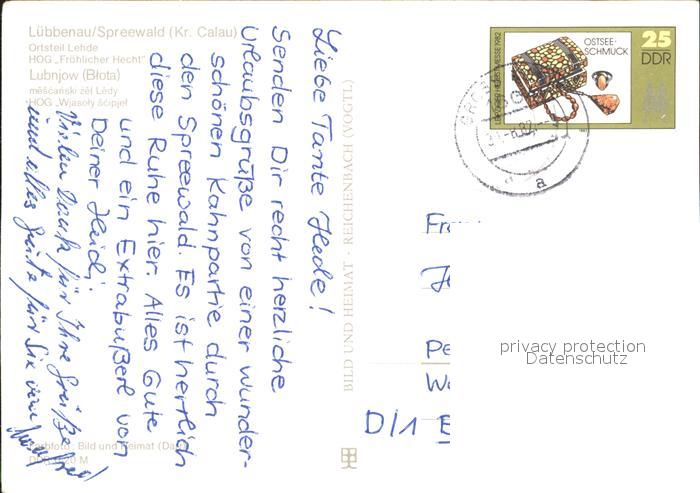 Lübbenau/Spreewald (Kr. Calau)
Ortsteil Lehde
HOG „Fröhlicher Hecht"
Lubnjow (Błota)
měšćański źěl Lědy
HOG „Wjasoły šćipjeł"
Liebe Tante Hede!
Senden Dir recht herzliche
Urlaubsgrüße von einer wunder-
schönen Kahnpartie durch
den Spreewald. Es ist herrlich
diese Ruhe hier. Alles Gute
und ein Extrabußerl von
Deiner Heidi.
Vielen Dank für Ihre Grüße
und alles Gute für Sie
BILD UND HEIMAT · REICHENBACH (VOGTL)
Farbfoto: Bild und Heimat
LEIPZIGER HERBSTMESSE 1982
OSTSEE-
SCHMUCK
25
DDR
a
privacy protection
Datenschutz
D/1